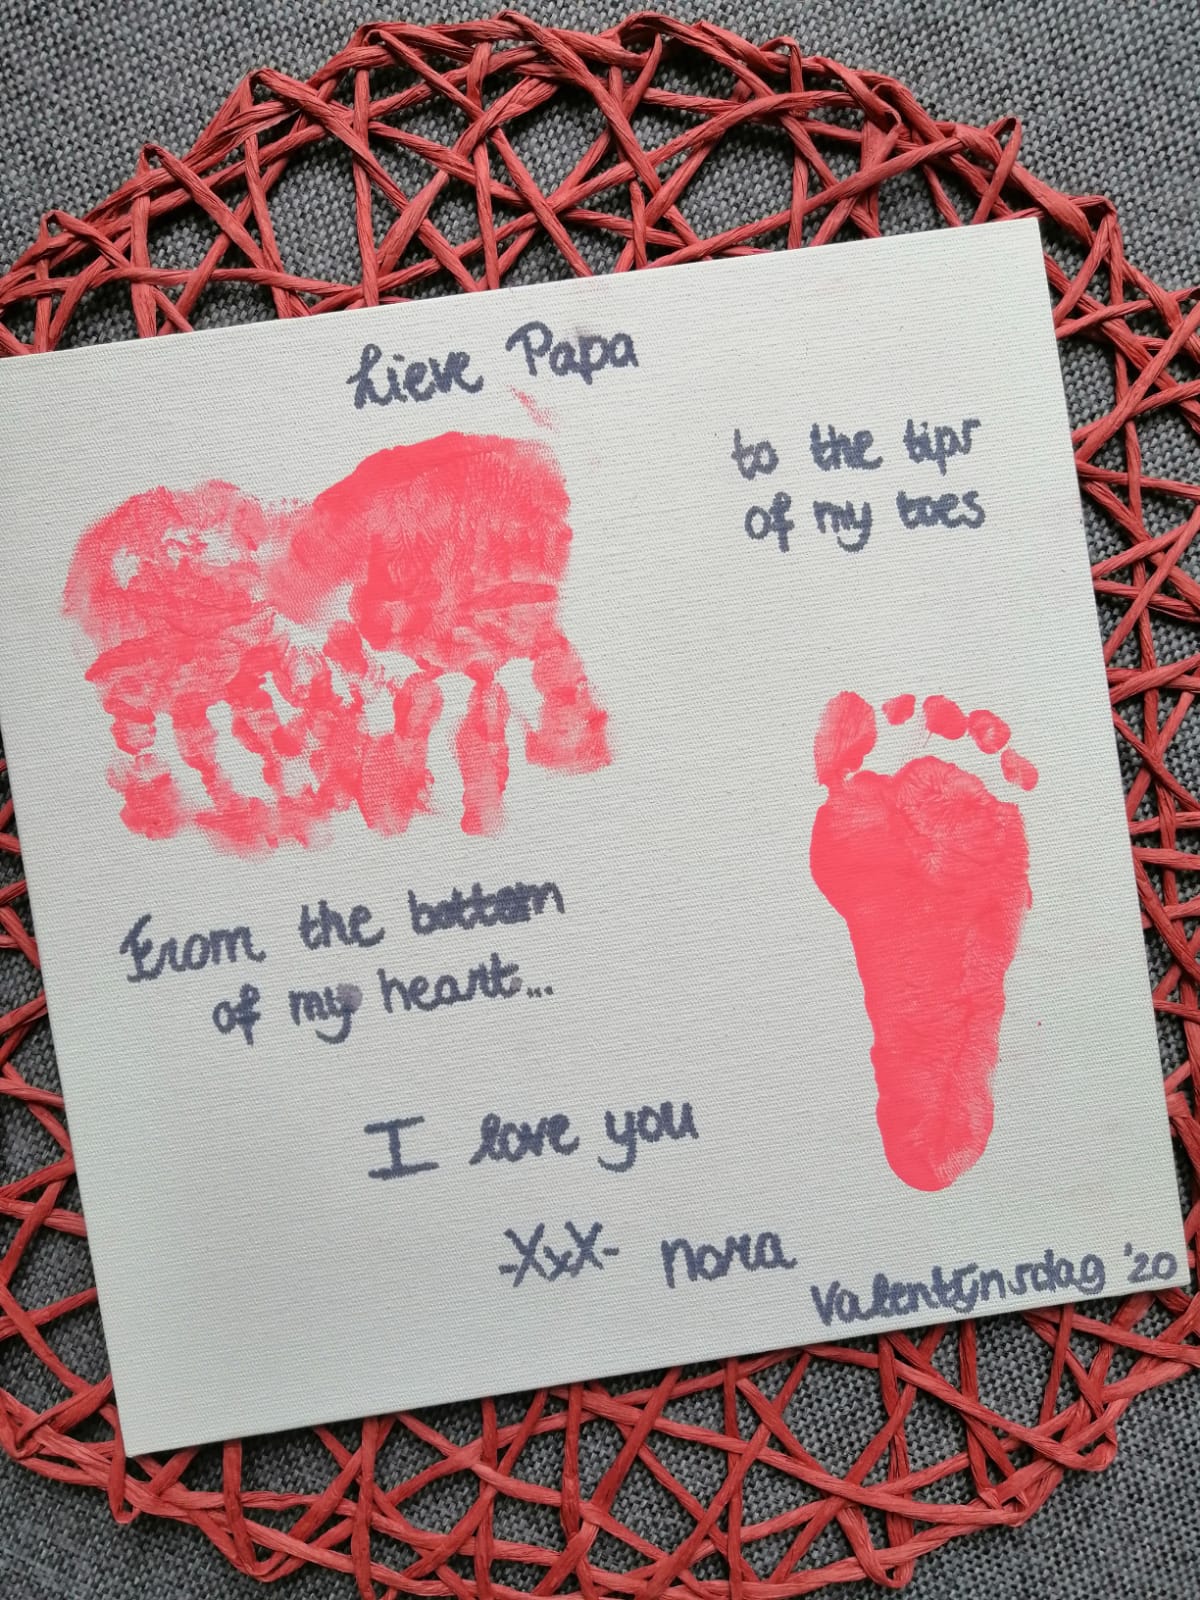 Lieve Papa
to the tips
of my toes
From the bottom
of my heart...
I love you
-XxX- nora
Valentijnsdag '20